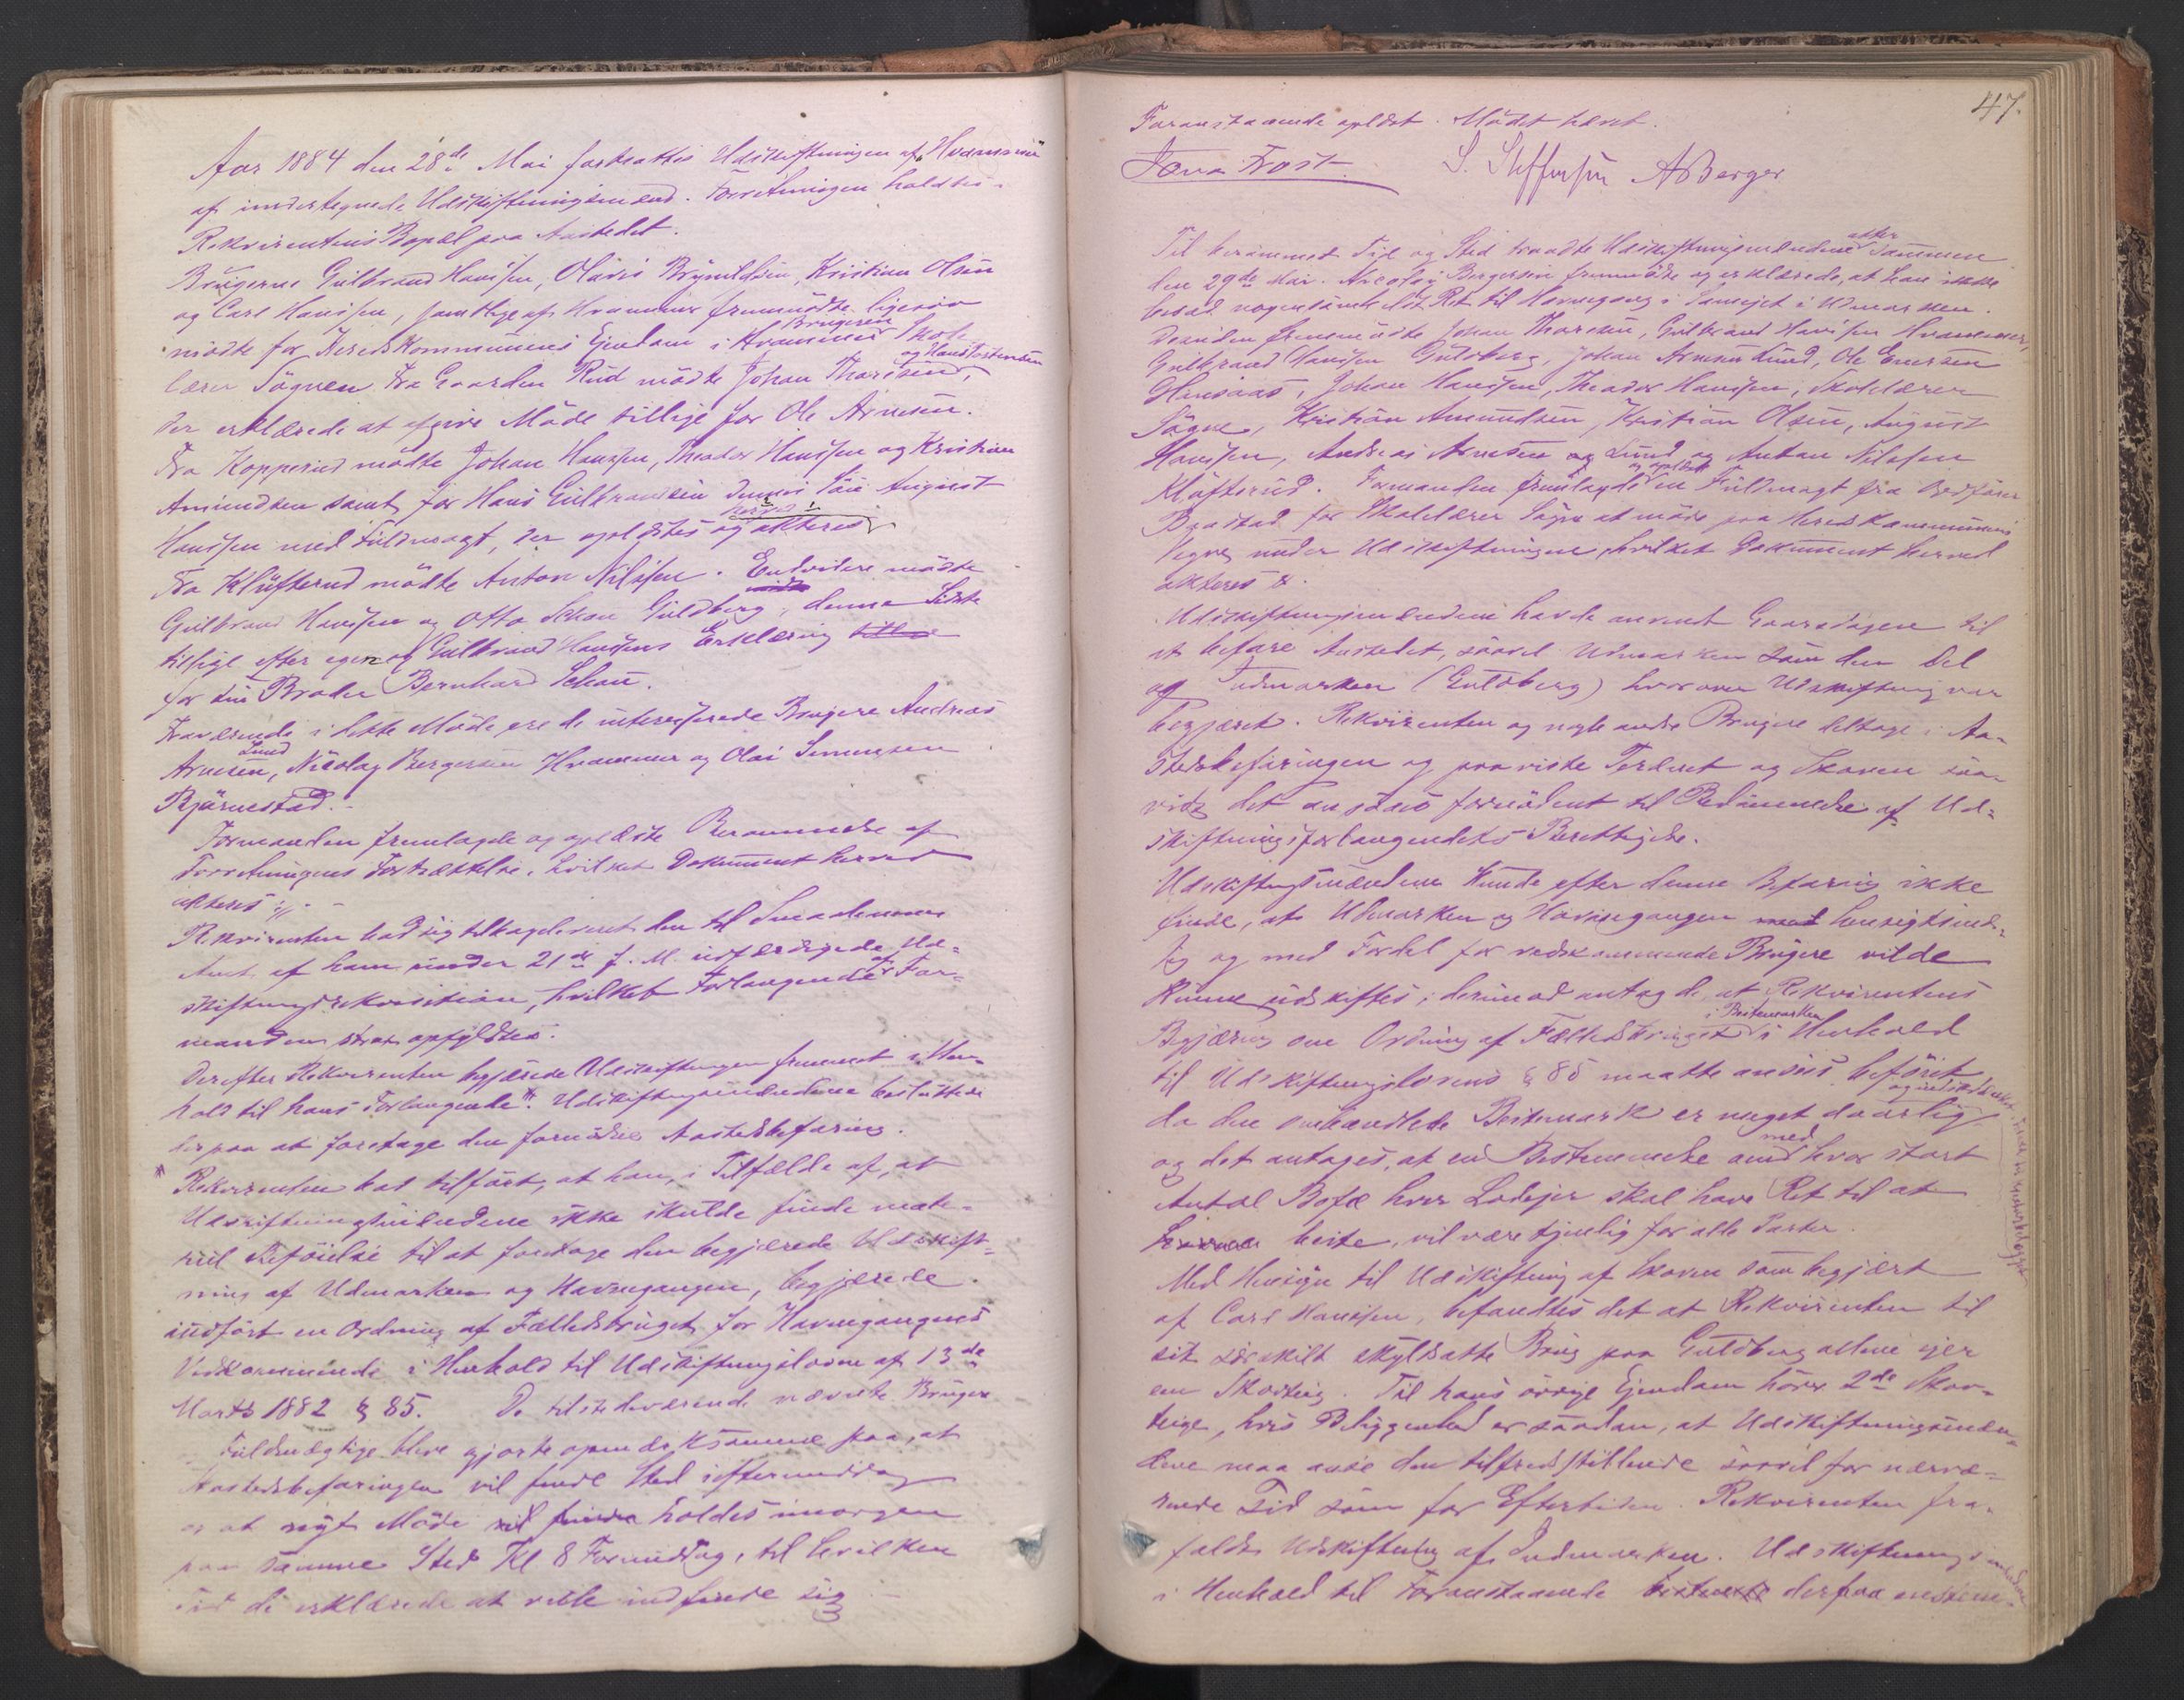 Aar 1884 den 28de Mai fortsattes Udskiftningen af "Hvammer"
af undertegnede Udskiftningsmænd. Forretningen holdtes
Rekvirentens Bopæl paa Aastedet.
Brugerne Gulbrand Hanssen, Olaves Brynildsen, Kristian Olsen
og Carl Hanssen, samtlige af Hvammer fremmødte ligesom
mødte for Heredskommunens Ejendom i Hvammer Brugeren Skole
lærer Sögnen. Fra Gaarden Rud mödte Johan Thoresen, og Hans Torstensen
der erklærede at afgive Möde tillige for Ole Arnesen.
Fra Kopperud mödte Johan Hanssen, Theodor Hanssen og Kristian
Amundsen samt for Hans Gulbrandsen dennes Sön August
Hanssen med Fuldmagt, der oplæstes og herved akteres
Fra Kluftrud mödte Anton Nilssen. Endvidere mödte
Gulbrand Hanssen og Otto Schou Guldberg, denne Sidste
tillige efter egen og Gulbrand Hanssens Erklæring
for sin Broder Bernhard Schou.
Fraværende i dette Möde ere de interesserede Brugere Andreas
Arnesen Lund, Nicolay Bergersen Hvammer og Olai Simensen
Bjørnestad.
Formanden fremlagde og oplæste Berammelse af
Forretningens Fortsættelse, hvilket Dokument herved
akteres
Rekvirenten bad sig tilbageleveret den til
Amt af ham under 21de f. M. udfærdigede Ud-
skiftningsrekvisition, hvilket Forlangende af For-
manden strax opfyldtes.
Derefter Rekvirenten begjærede Udskiftningen fremmet i Hen-
hold til hans Forlangende. Udskiftningsmændene besluttede
derpaa at foretage den fornødne Aastedsbefaring.
Rekvirenten bad tilført, at han, i Tilfælde af, at
Udskiftningsmændene ikke skulde finde
Beføielse til at foretage den begjærede Udskift-
ning af Udmarken og Havnegangen, begjærede
indført en Ordning af Fællesbruget for Havnegangens
Vedkommende i Henhold til Udskiftningsloven af 13de
Marts 1882 § 85. De tilstedeværende nævnte Brugere
Fuldmægtige bleve gjorte opmærksomme paa, at
Aastedsbefaringen vil finde Sted i Eftermiddag
og at nyt Möde vil finde holdes imorgen
paa samme Sted Kl 8 Formiddag, til hvilken
Tid de erklærede at ville indfinde sig
47.
Foranstaaende oplæst. Mödet hævet.
Frost S. Steffensen A Berger
Til berammet Tid og Sted traadte Udskiftningsmændene atter sammen
den 29de Mai. Nicolay Bergersen fremmødte og erklærede, at han ikke
besad nogensomhelst Ret til Havnegang i Sameiet i Udmarken.
Desuden fremmødte Johan Thoresen, Gulbrand Hanssen Hvammer,
Gulbrand Hanssen Guldberg, Johan Arnesen Lund, Ole Enersen
Johan Hanssen, Theodor Hanssen, Skolelærer
Sögne, Kristian Amundsen, Kristian Olsen, August
Hanssen, Andreas Arnesen Lund og Anton Nilssen
Kluftrud. Formanden fremlagde og oplæste en Fuldmagt fra Ordfører
Byestad for Skolelærer Sögne at möde paa Heredskommunens
Vegne under Udskiftningen, hvilket Dokument herved
akteres
Udskiftningsmændene havde anvendt Gaarsdagen til
at befare Aastedet, saavel Udmarken som den Del
af Indmarken (Guldberg) hvorover Udskiftning var
begjæret. Rekvirenten og nogle andre Brugere deltoge i Aa-
stedsbefaringen og paaviste Terrænet og Skoven saa-
vidt det ansaaes fornødent til Bedømmelse af Ud-
skiftningsforlangendets Berettigelse.
Udskiftningsmændene kunde efter denne Befaring ikke
finde, at Udmarken og Havnegangen med hensigtsmæs-
sig og med Fordel for vedkommende Brugere vilde
kunne udskiftes; derimod antog de, at Rekvirentens
Begjæring om Ordning af Fællesbruget i Beitemarken i Henhold
til Udskiftningslovens § 85 maatte ansees beføiet
da den omhandlede Beitemark er meget daarlig
og det antages, at en Bestemmelse med hvor stort
Antal Bøfæ hver Lodejer skal have Ret til at
beite, vil være tjenlig for alle Parter.
Med Hensyn til Udskiftning af Skoven som begjært
af Carl Hanssen, befandtes det at Rekvirenten til
sit særskilt skyldsatte Brug paa Guldberg allene ejer
en Skovteig. Til hans øvrige Ejendom hører 2de Skov-
teige, hvis Beliggenhed er saadan, at Udskiftningsmæn-
dene maa anse den tilfredsstillende saavel for nærvæ-
rende Tid som for Eftertiden. Rekvirenten fra-
faldt Udskiftning af Indmarken. Udskiftningsmændene
i Henhold til Foranstaaende derpaa